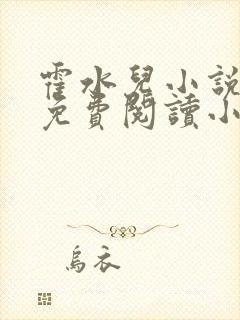 霍水兒小說
免費閱讀小
烏衣